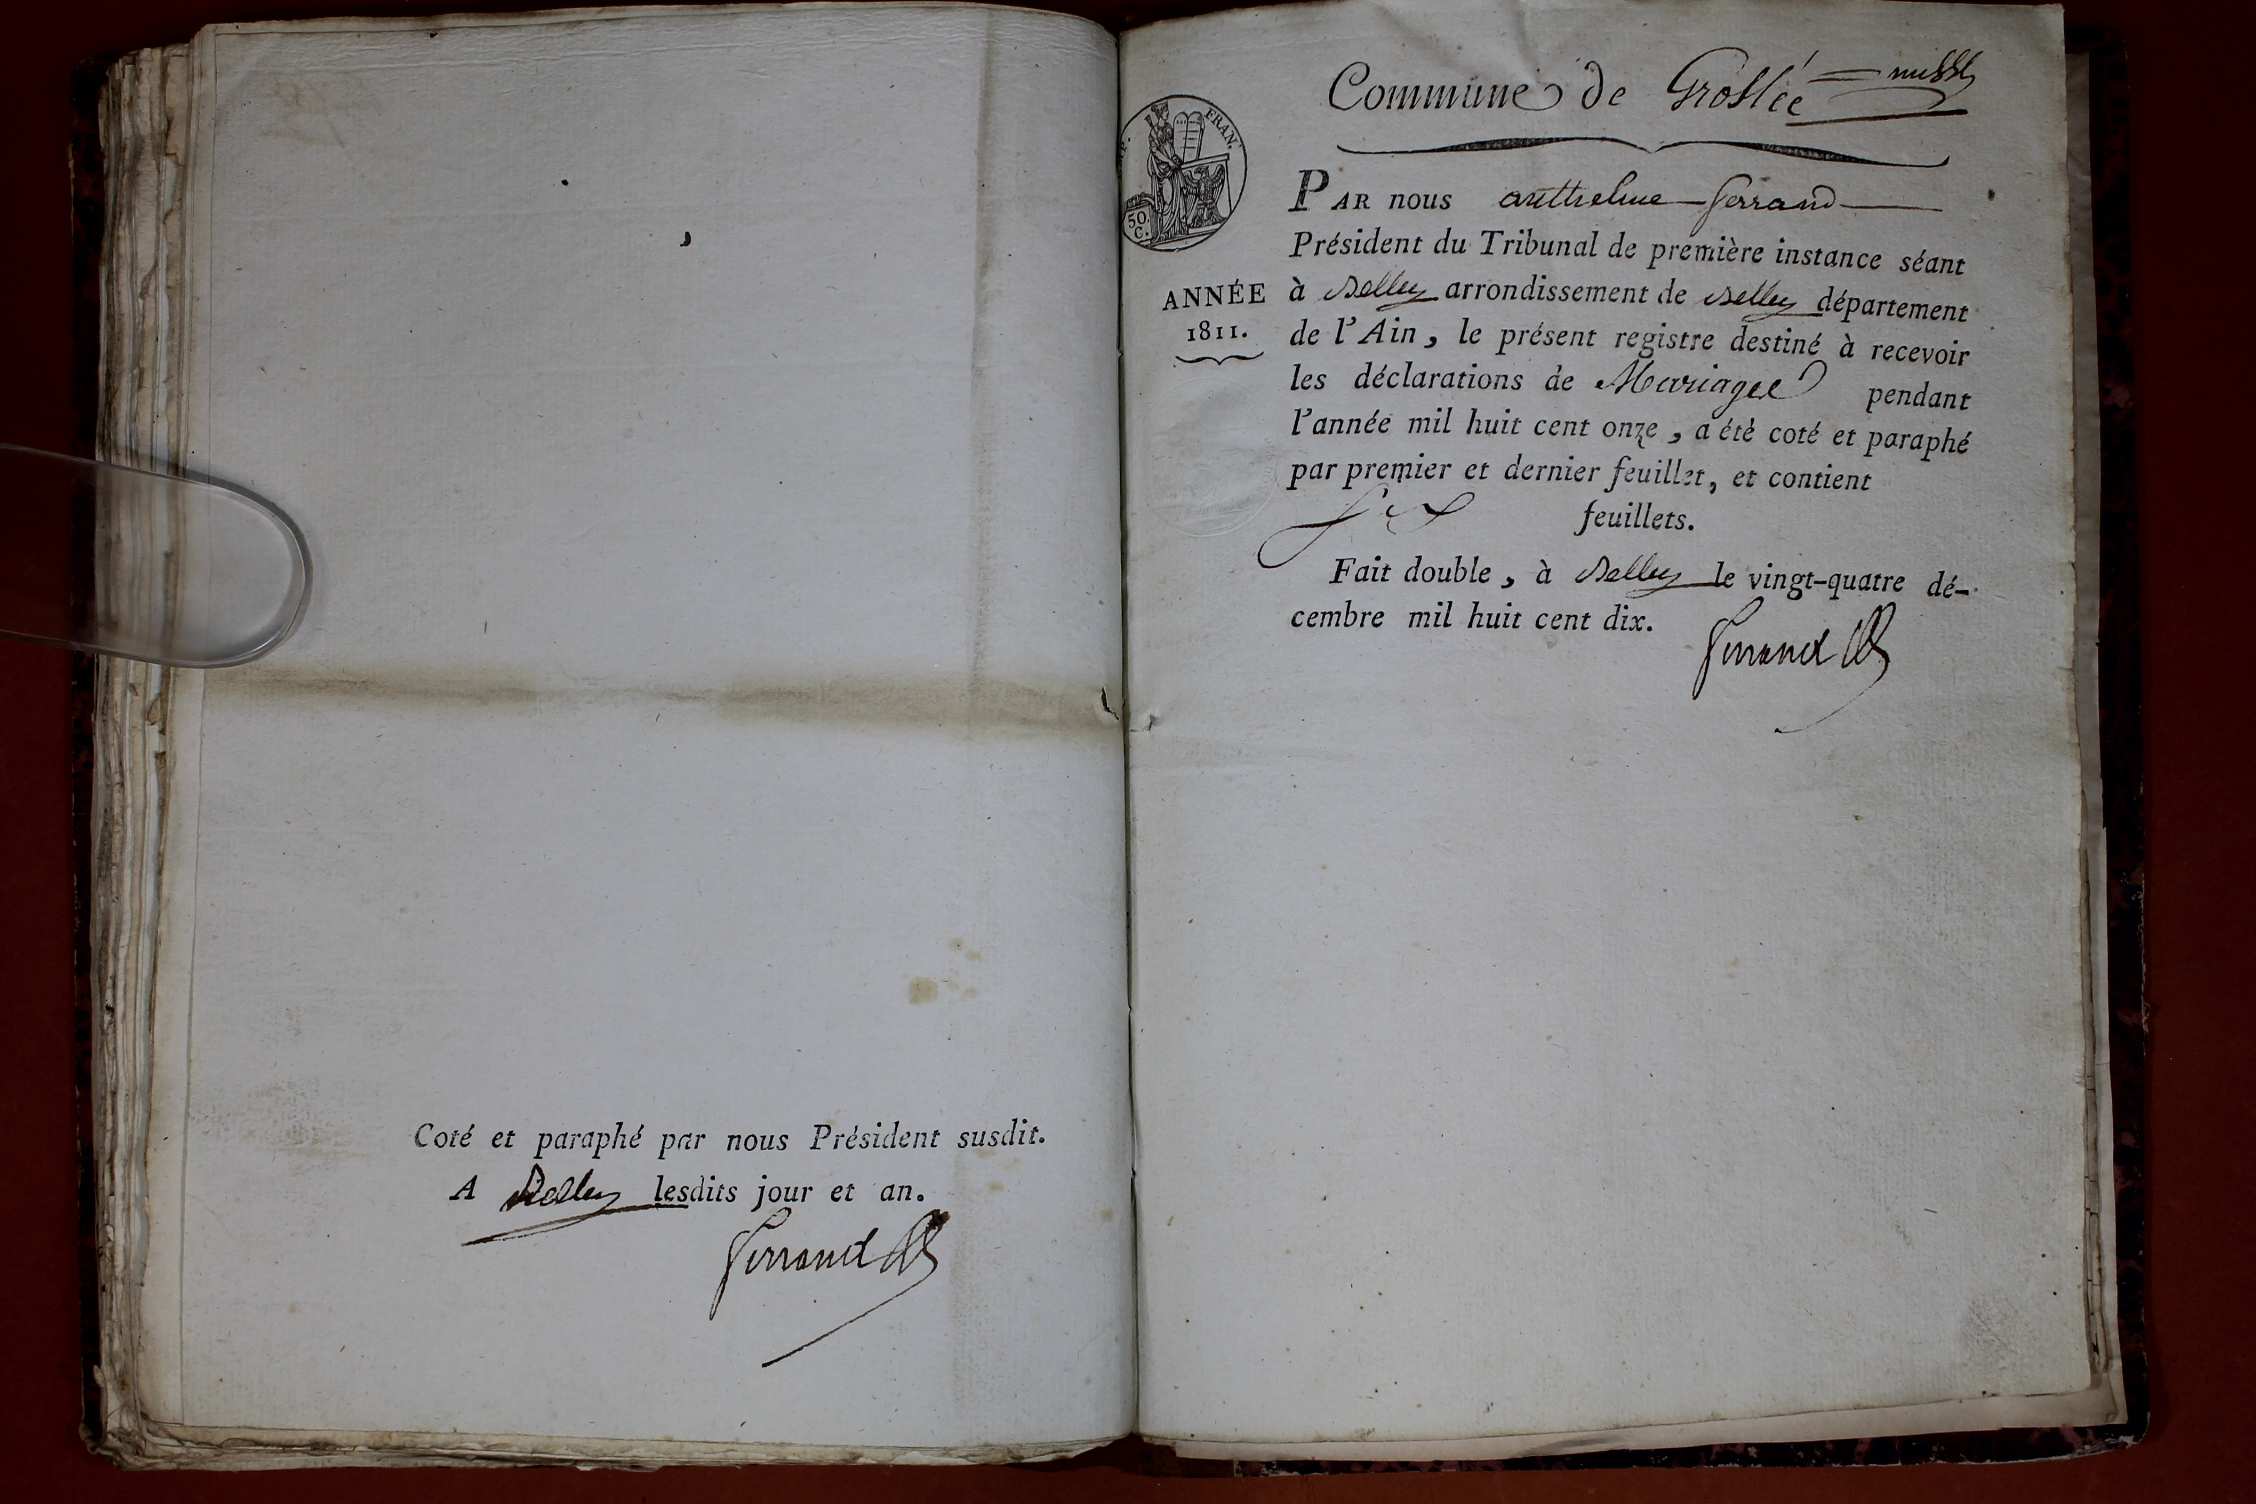 Coté et paraphé par nous Président susdit.
A Belley lesdits jour et an.
Ferrand
Commune de Groslée
FRAN.
50
C.
PAR nous anthelme ferrand
Président du Tribunal de première instance séant
ANNÉE
1811.
à Belley arrondissement de Belley département
de l'Ain, le présent registre destiné à recevoir
les déclarations de Mariages pendant
l'année mil huit cent onze, a été coté et paraphé
par premier et dernier feuillet, et contient
six feuillets.
Fait double, à Belley le vingt-quatre dé-
cembre mil huit cent dix.
Ferrand